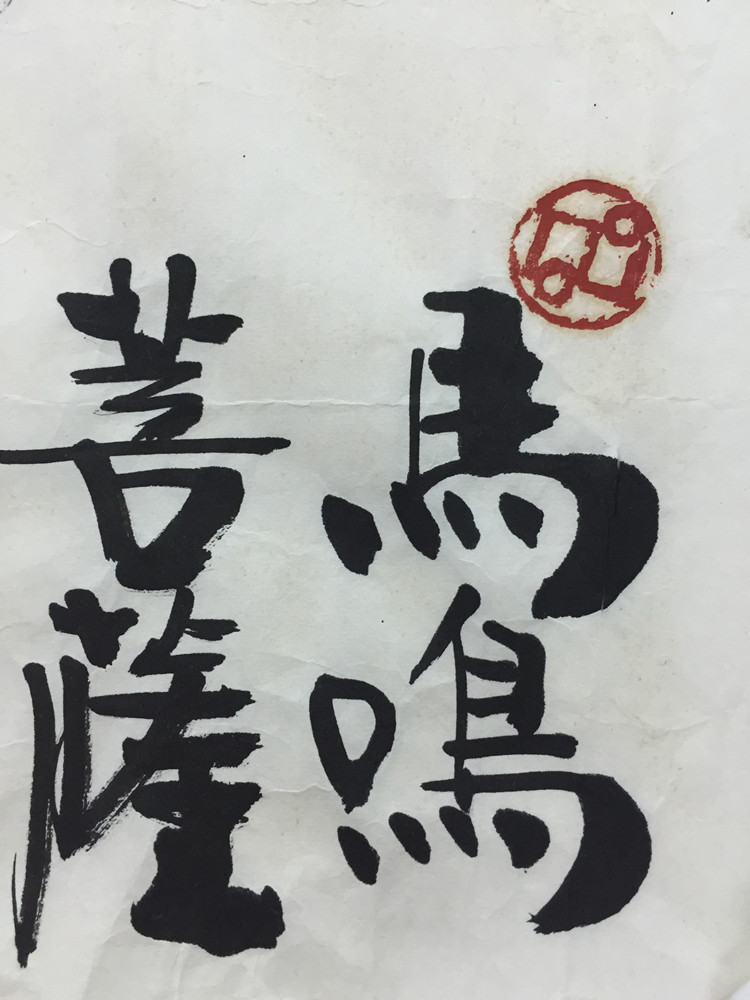 馬鳴
菩薩